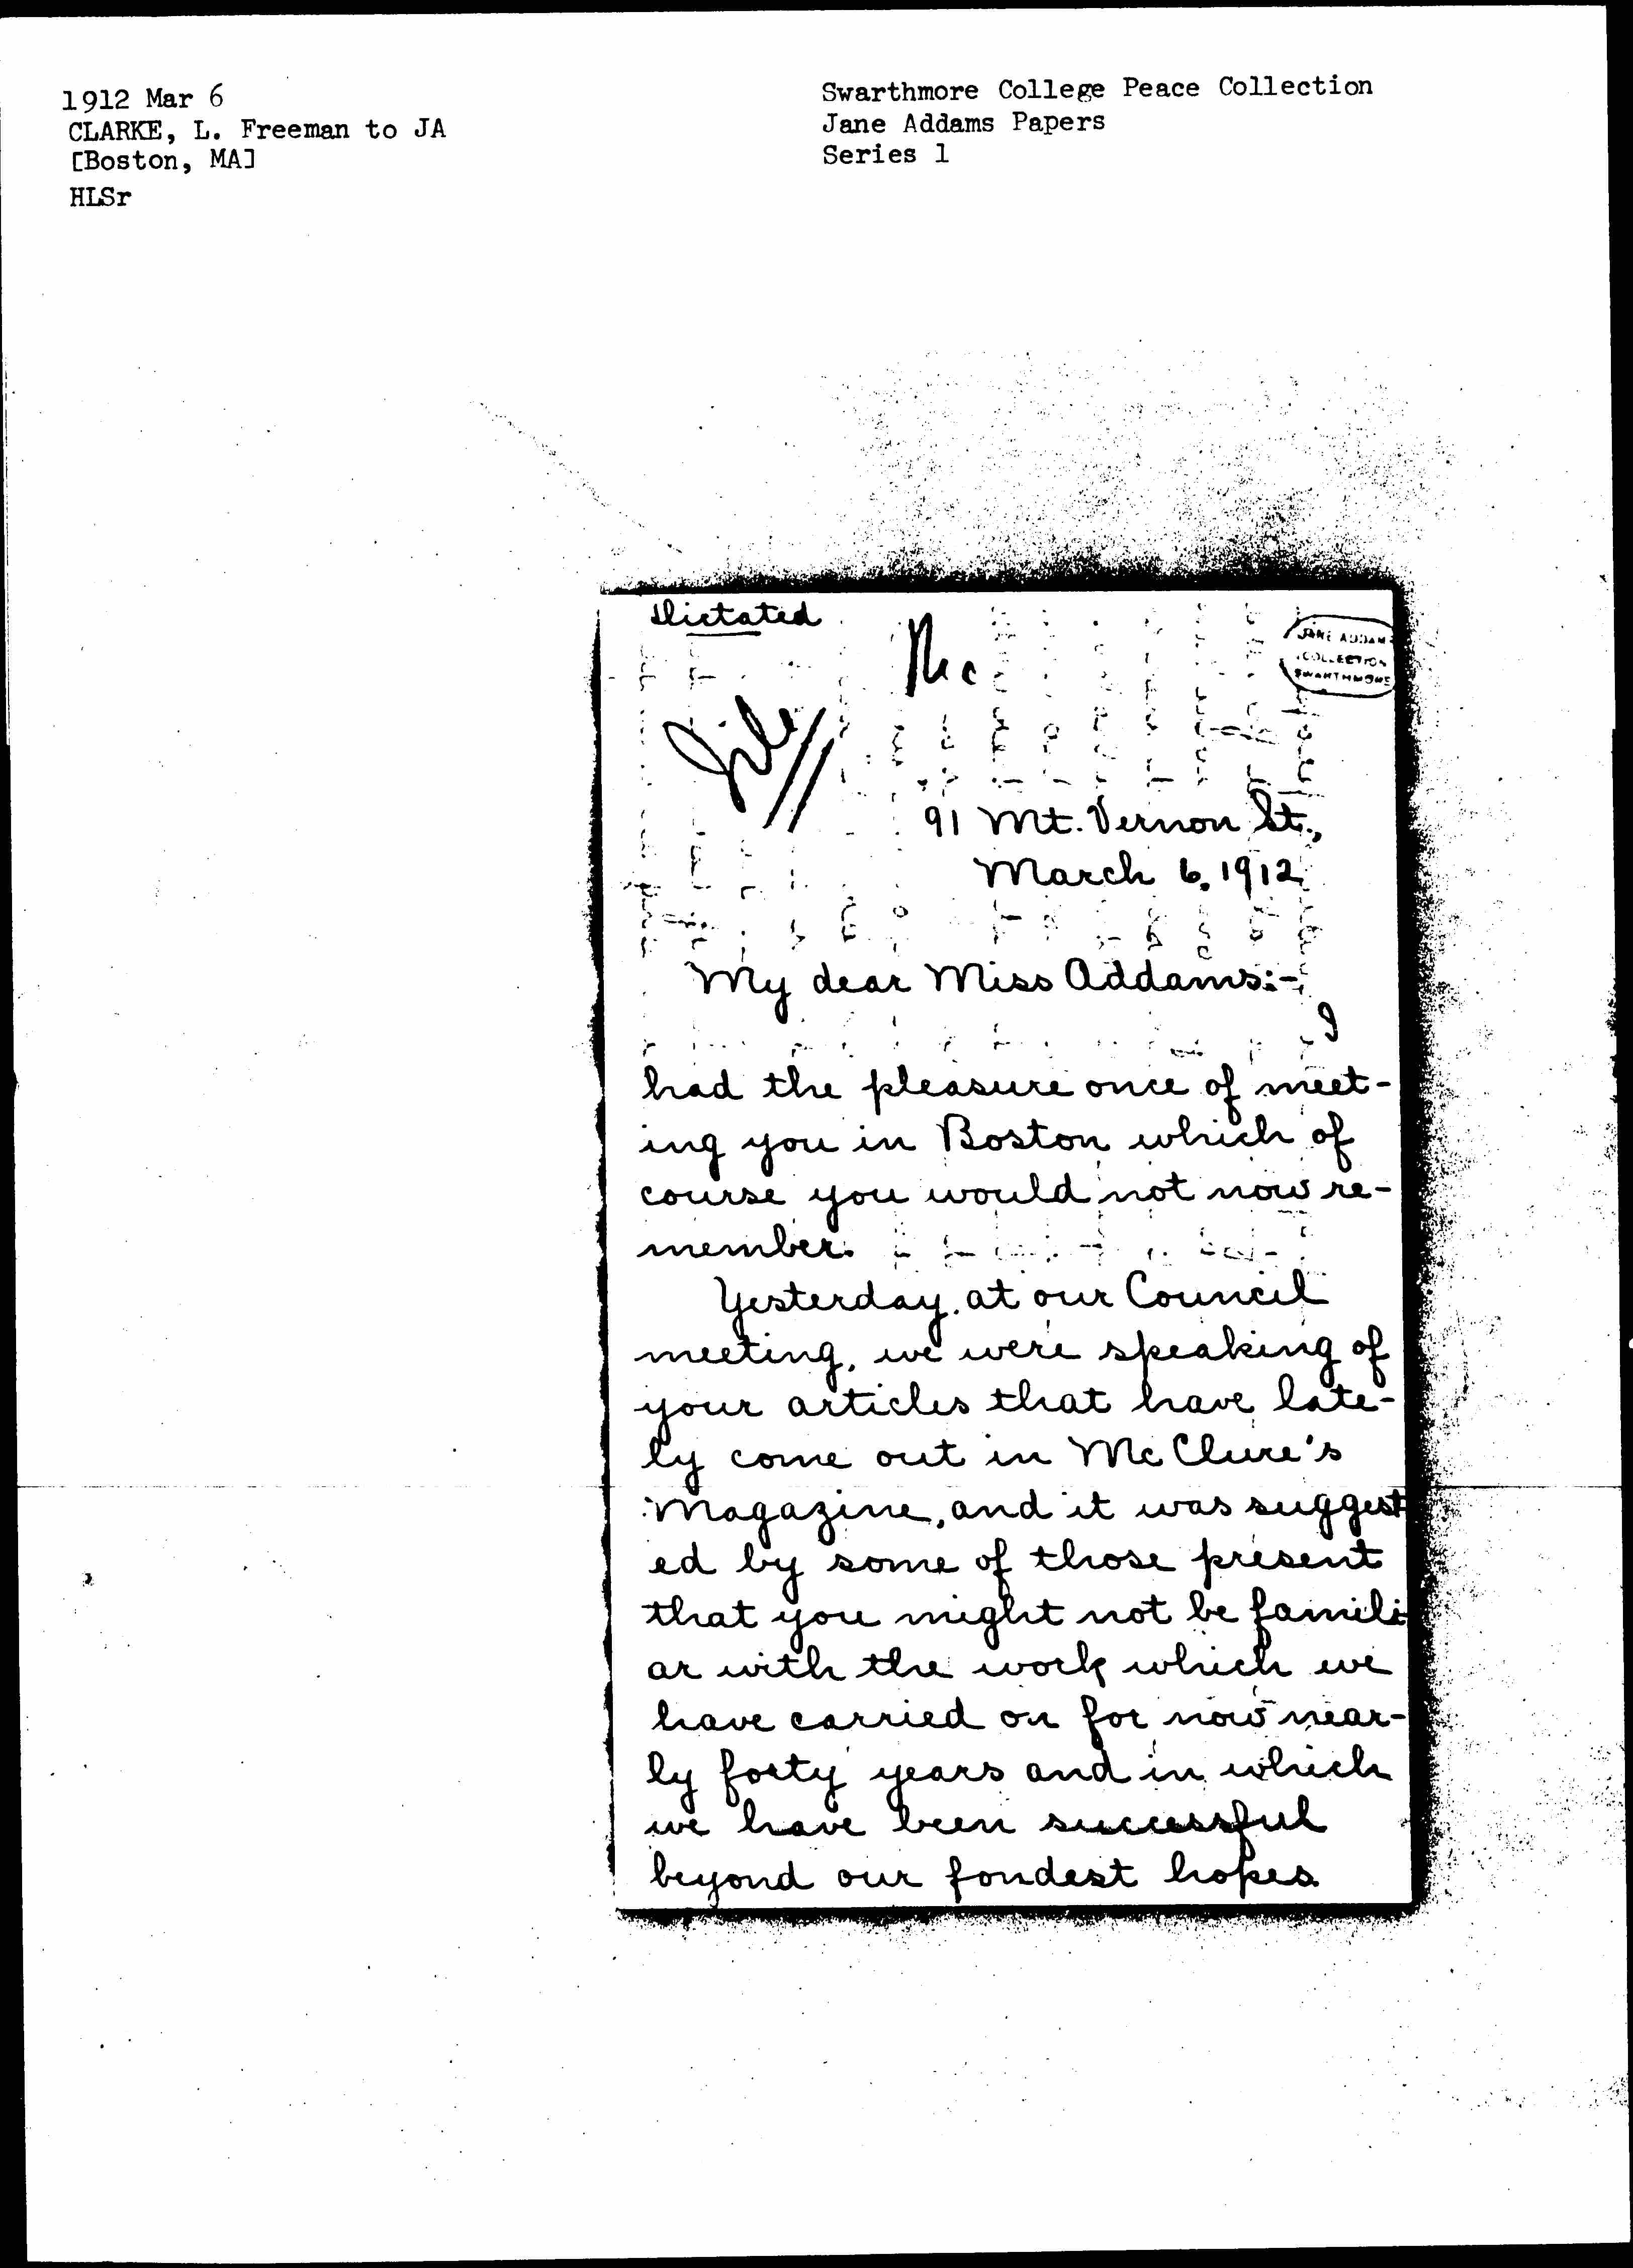 1912 Mar 6
CLARKE, L. Freeman to JA
[Boston, MA]
HLSr
Swarthmore College Peace Collection
Jane Addams Papers
Series 1
Dictated
Mc
File
JANE ADDAMS
COLLECTION
SWARTHMORE
91 Mt. Vernon St.,
March 6, 1912.
My dear Miss Addams:-
I
had the pleasure once of meet-
ing you in Boston which of
course you would not now re-
member.
Yesterday, at our Council
meeting, we were speaking of
your articles that have late-
ly come out in McClure's
Magazine, and it was suggest
ed by some of those present
that you might not be famili-
ar with the work which we
have carried on for now near-
ly forty years and in which
we have been successful
beyond our fondest hopes.